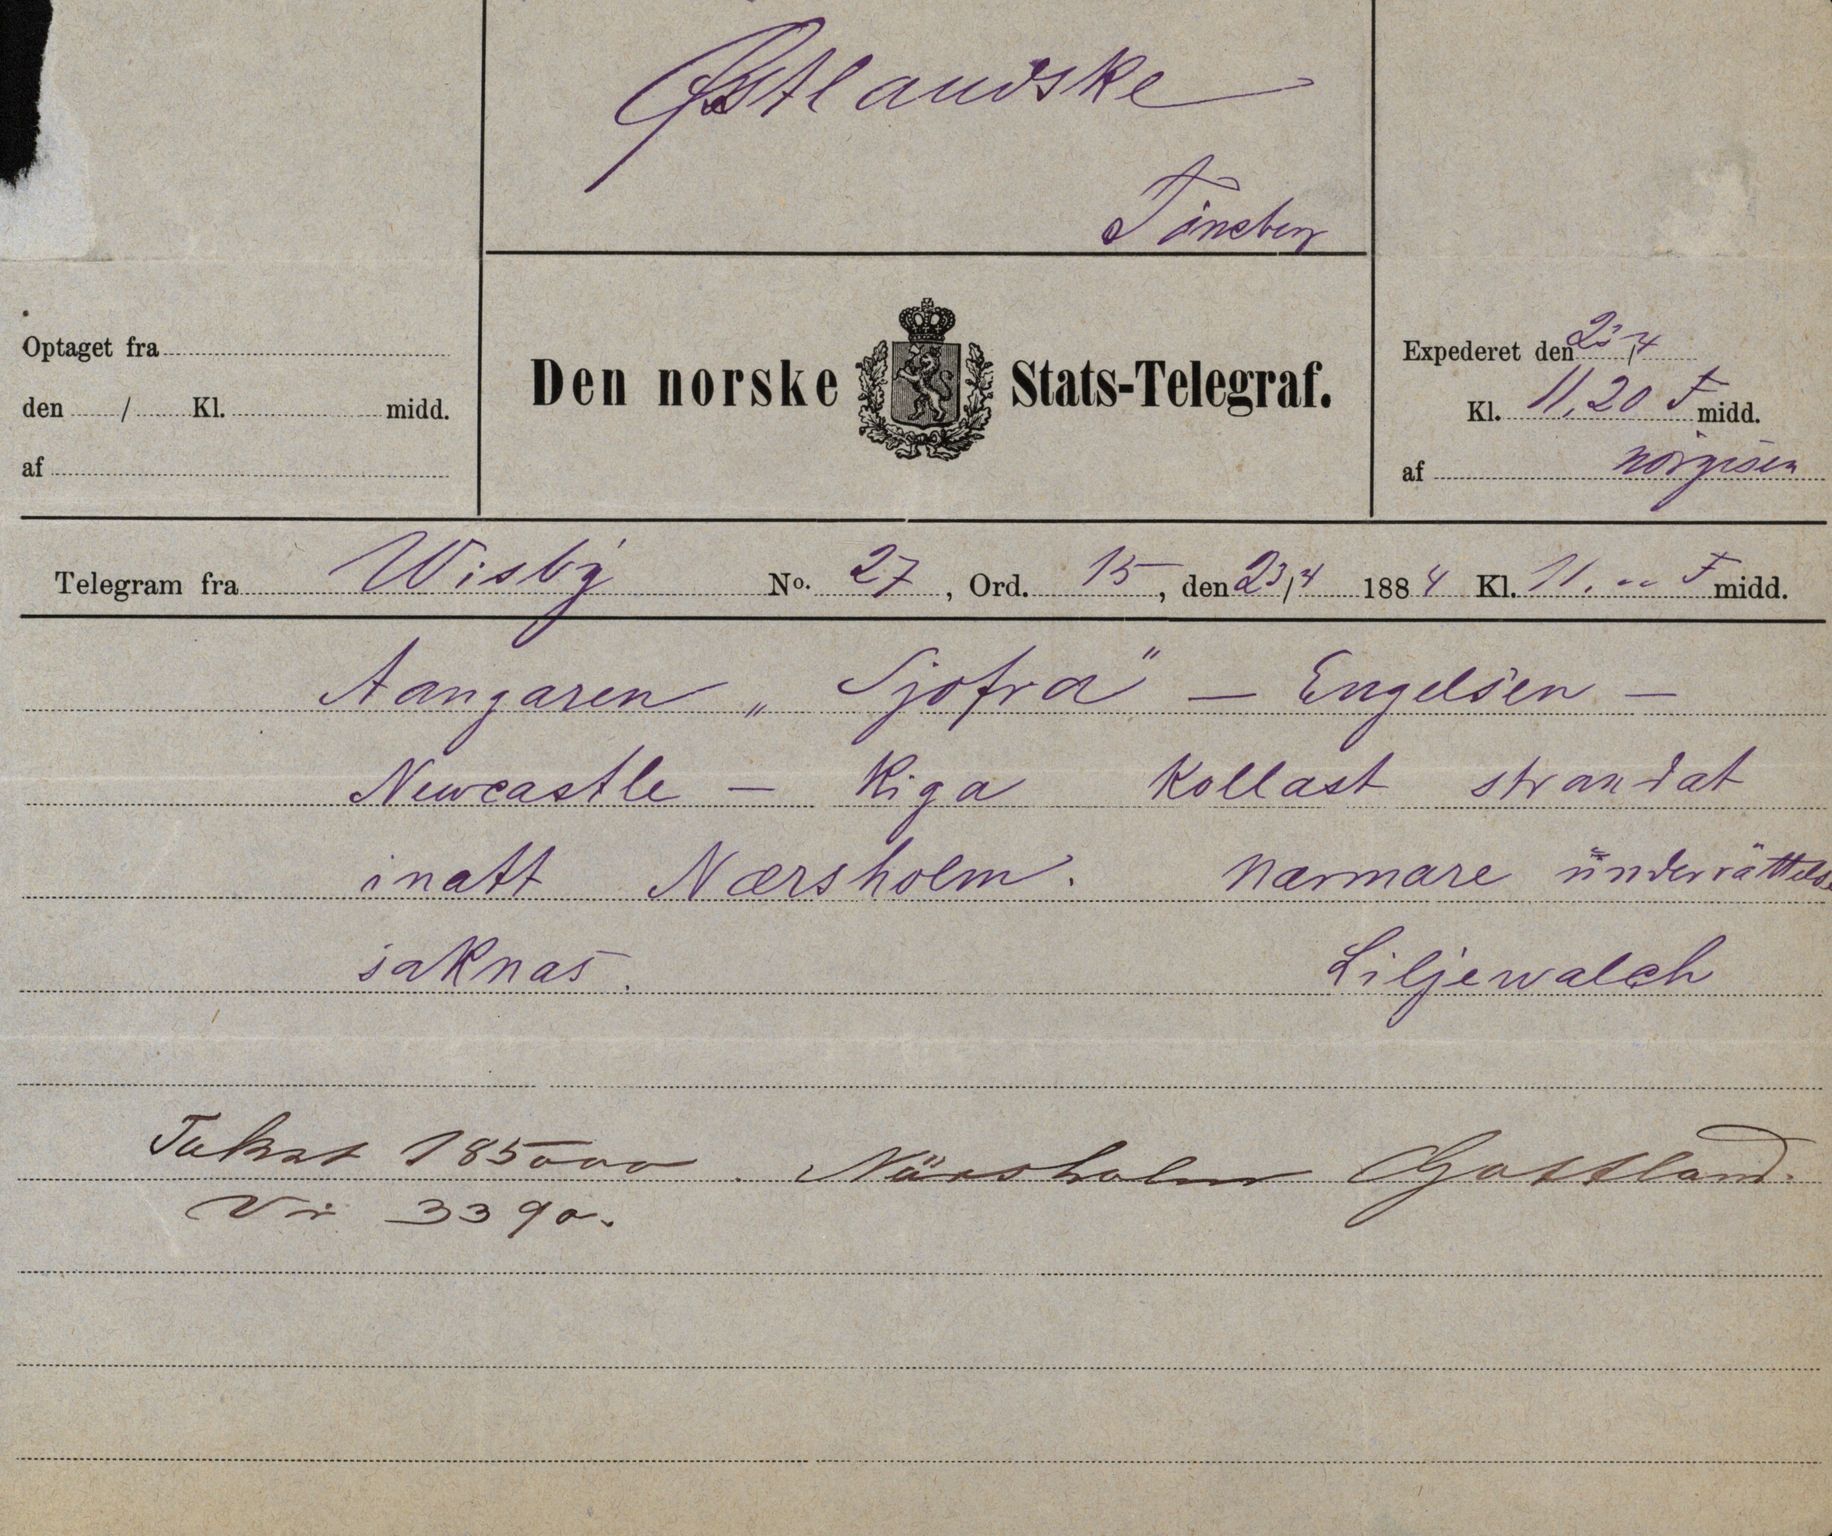 Østlandske
Tönsberg
Optaget fra
den / Kl. midd.
af
Den norske Stats-Telegraf.
Expederet den 23/4
Kl. 11,20 F midd.
af
Telegram fra Wisby No. 27, Ord. 15, den 23/4 1884 Kl. 11. „ F midd.
Aangaren „Sjofra" — Engelsen —
Newcastle — Riga Kollast strandat
inatt Nærsholm. närmare underrättelse
saknas. Liljewalch
Takst 185000. Närsholm Gottland.
Vi 3390.